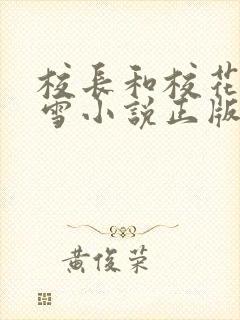 校長和校花
雪小說正版
黃俊榮